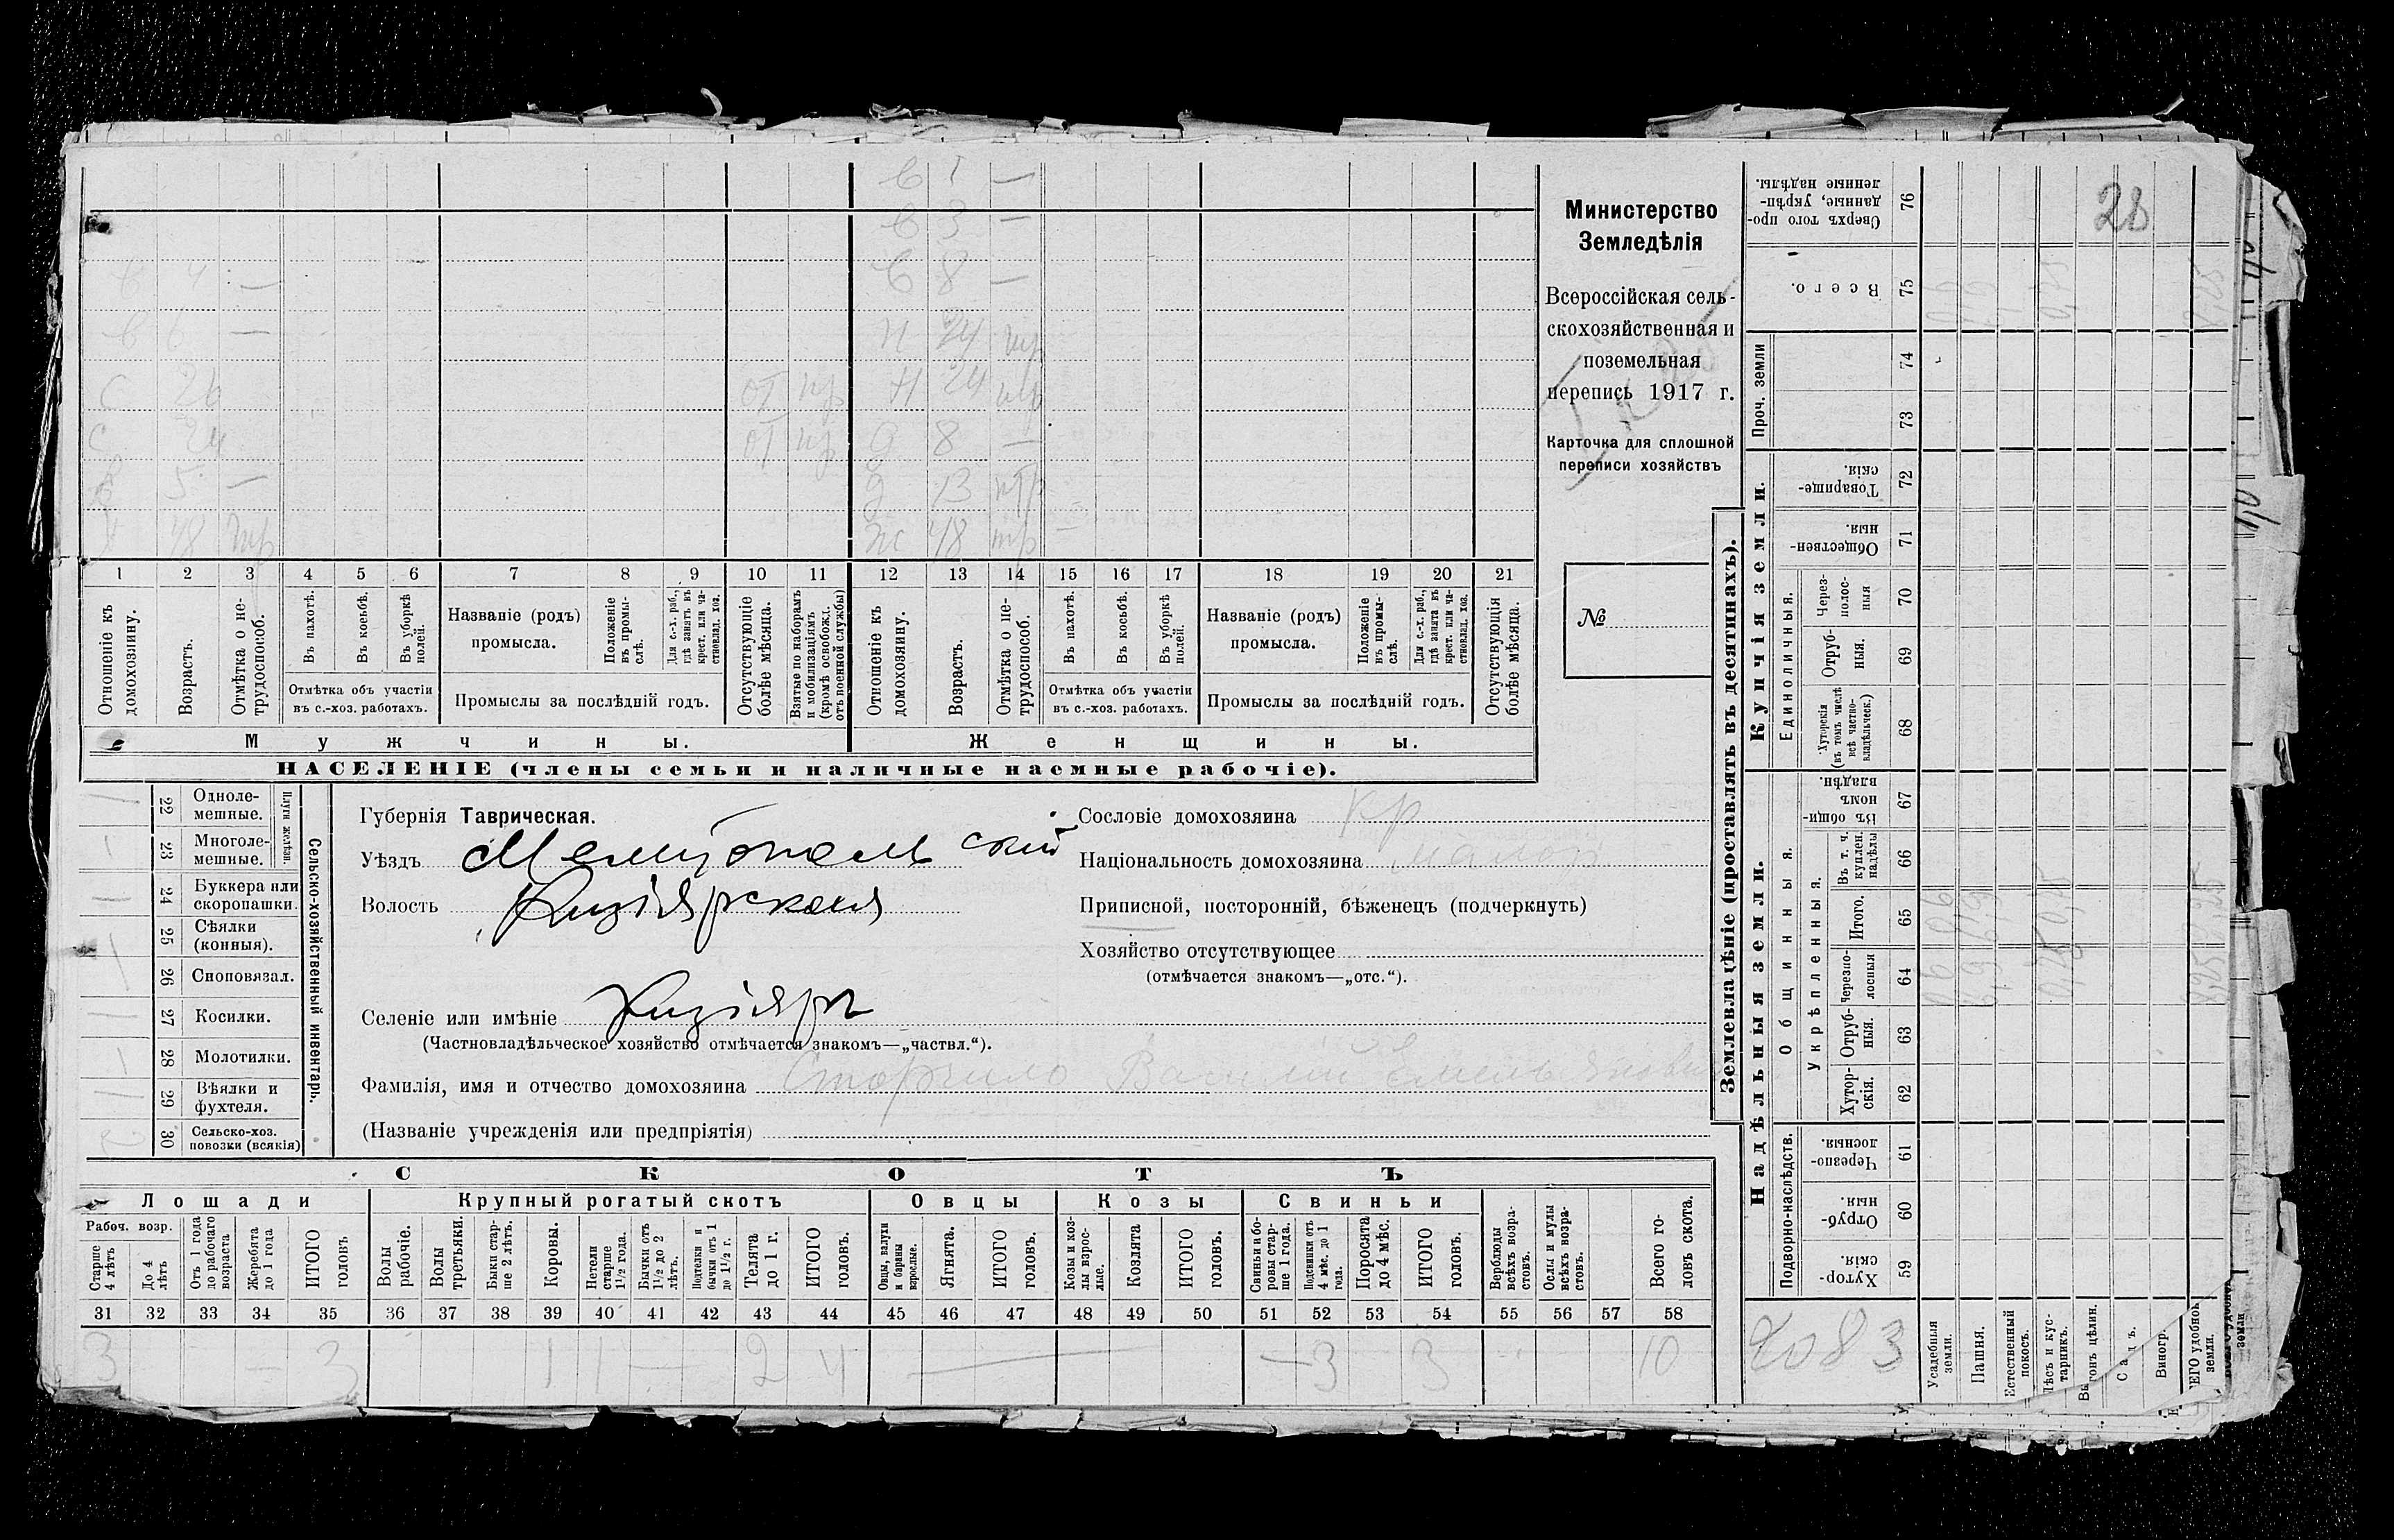 в 1 —
в 3 —
в 4 — в 8 —
в 6 — н 24 тр
с 26 от пр н 24 тр
с 24 от пр д 8 —
в 5 — д 13 птр
х 48 тр ж 48 тр —
1 2 3 4 5 6 7 8 9 10 11 12 13 14 15 16 17 18 19 20 21
Отношеніе къ домохозяину.
Возрастъ.
Отмѣтка о нетрудоспособ.
Въ пахотѣ.
Въ косьбѣ.
Въ уборкѣ полей.
Отмѣтка объ участіи
въ с.-хоз. работахъ.
Названіе (родъ)
промысла.
Положеніе въ промыслѣ.
Для с.-х. раб., гдѣ занятъ въ крест. или частновлад. хоз.
Промыслы за послѣдній годъ.
Отсутствующіе болѣе мѣсяца.
Взятые по наборамъ и мобилизаціямъ (кромѣ освобожд. отъ военной службы)
Отношеніе къ домохозяину.
Возрастъ.
Отмѣтка о нетрудоспособ.
Въ пахотѣ.
Въ косьбѣ.
Въ уборкѣ полей.
Отмѣтка объ участіи
въ с.-хоз. работахъ.
Названіе (родъ)
промысла.
Положеніе въ промыслѣ.
Для с.-х. раб., гдѣ занята въ крест. или частновлад. хоз.
Промыслы за послѣдній годъ.
Отсутствующія болѣе мѣсяца.
Мужчины. Женщины.
НАСЕЛЕНІЕ (члены семьи и наличные наемные рабочіе).
Министерство
Земледѣлія
Всероссійская сель-
скохозяйственная и
поземельная
перепись 1917 г.
Карточка для сплошной
переписи хозяйствъ
№
Сельско-хозяйственный инвентарь.
Плуги желѣзн.
1 22 Одноле-
мешные.
– 23 Многоле-
мешные.
1 24 Буккера или
скоропашки.
1 25 Сѣялки
(конныя).
26 Сноповязал.
1 27 Косилки.
– 28 Молотилки.
1 29 Вѣялки и
фухтеля.
2 30 Сельско-хоз.
повозки (всякія)
Губернія Таврическая.
Уѣздъ Мелитопольскій
Волость Кизіярская
Селеніе или имѣніе Кизіяръ
(Частновладѣльческое хозяйство отмѣчается знакомъ—„частвл.“).
Фамилія, имя и отчество домохозяина Василій Емельяновъ
(Названіе учрежденія или предпріятія)
Сословіе домохозяина кр
Національность домохозяина малор
Приписной, посторонній, бѣженецъ (подчеркнуть)
Хозяйство отсутствующее
(отмѣчается знакомъ—„отс.“).
СКОТЪ
Лошади Крупный рогатый скотъ Овцы Козы Свиньи
Рабоч. возр.
Старше 4 лѣтъ
До 4 лѣтъ
Отъ 1 года до рабочаго возраста
Жеребята до 1 года
ИТОГО головъ
Волы рабочіе.
Волы третьяки.
Быки старше 2 лѣтъ.
Коровы.
Нетели старше 1½ года.
Бычки отъ 1½ до 2 лѣтъ.
Подтелки и бычки отъ 1 до 1½ г.
Телята до 1 г.
ИТОГО головъ.
Овцы, валухи и бараны взрослые.
Ягнята.
ИТОГО головъ.
Козы и козлы взрослые.
Козлята
ИТОГО головъ.
Свиньи и боровы старше 1 года.
Подсвинки отъ 4 мѣс. до 1 года.
Поросята до 4 мѣс.
ИТОГО головъ.
Верблюды всѣхъ возрастовъ.
Ослы и мулы всѣхъ возрастовъ.
Всего головъ скота.
31 32 33 34 35 36 37 38 39 40 41 42 43 44 45 46 47 48 49 50 51 52 53 54 55 56 57 58
3 – 3 1 1 — 2 4 — — 3 3 10
Землевладѣніе (проставлять въ десятинахъ).
Купчія земли.
Надѣльныя земли.
Сверхъ того проданные, укрѣпленные надѣлы. 76
28
Всего. 75
Проч. земли 74 73
Товарищескія. 72
Общественныя. 71
Единоличныя.
Черезполосныя 70
Отрубныя. 69
Хуторскія (въ томъ числѣ всѣ частновладѣльческ.) 68
Въ общиномъ владѣн. 67
Общинныя.
Укрѣпленныя.
Въ т. ч. куплен. надѣлы 66
Итого. 65
Черезполосныя 64
Отрубныя. 63
Хуторскія. 62
Подворно-наслѣдств.
Черезполосныя. 61
Отрубныя. 60
Хуторскія. 59
2083
Усадебныя земли.
Пашня.
Естественный покосъ.
Лѣсъ и кустарникъ.
Выгонъ цѣлин.
Садъ.
Виногр.
ЕГО удобной земли.